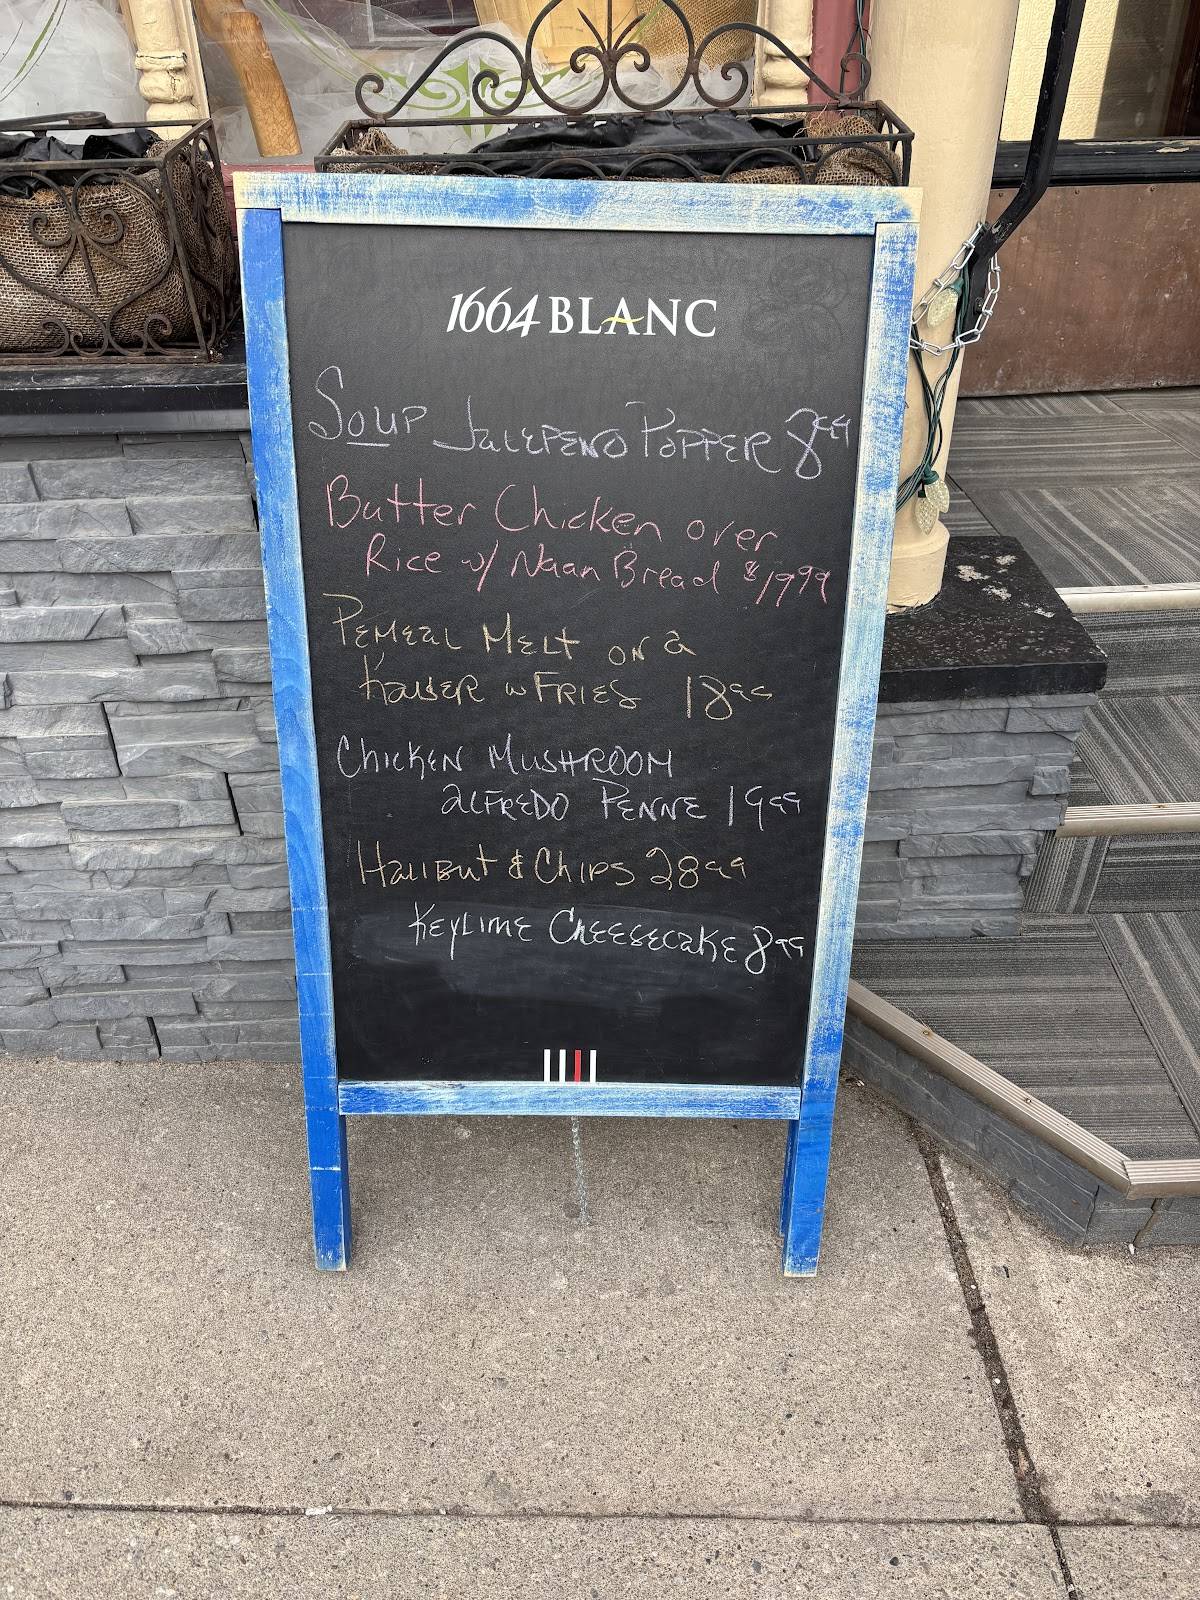 1664 BLANC
Soup Jalepeno Popper 8 99
Butter Chicken over
Rice w/ Naan Bread $19 99
Pemeal Melt on a
Kaiser w Fries 18 99
Chicken Mushroom
Alfredo Penne 19 99
Halibut & Chips 28 99
Keylime Cheesecake 8 99